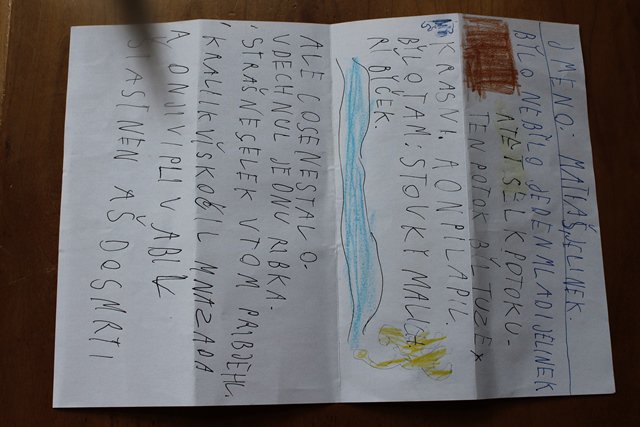 JMENO: MATYAŠ JELINEK
BYLO NEBYLO JEDEN MLADI JELINEK
A TET ŠEL K POTOKU.
TEN POTOK BYL TUZEX
KRASNI. A ON PIL A PIL.
BYLO TAM: STOVKY MALICH
RIBYČEK.
ALE CO SE NESTALO.
VDECHNUL JEDNU RIBKA.
STRAŠNE SE LEK V TOM PRIBJEHL.
KRALIK VISKOČIL MNAZADA
A ONJI VIPLI V ŽABU
STASTNEN AŠ DOSMRTI